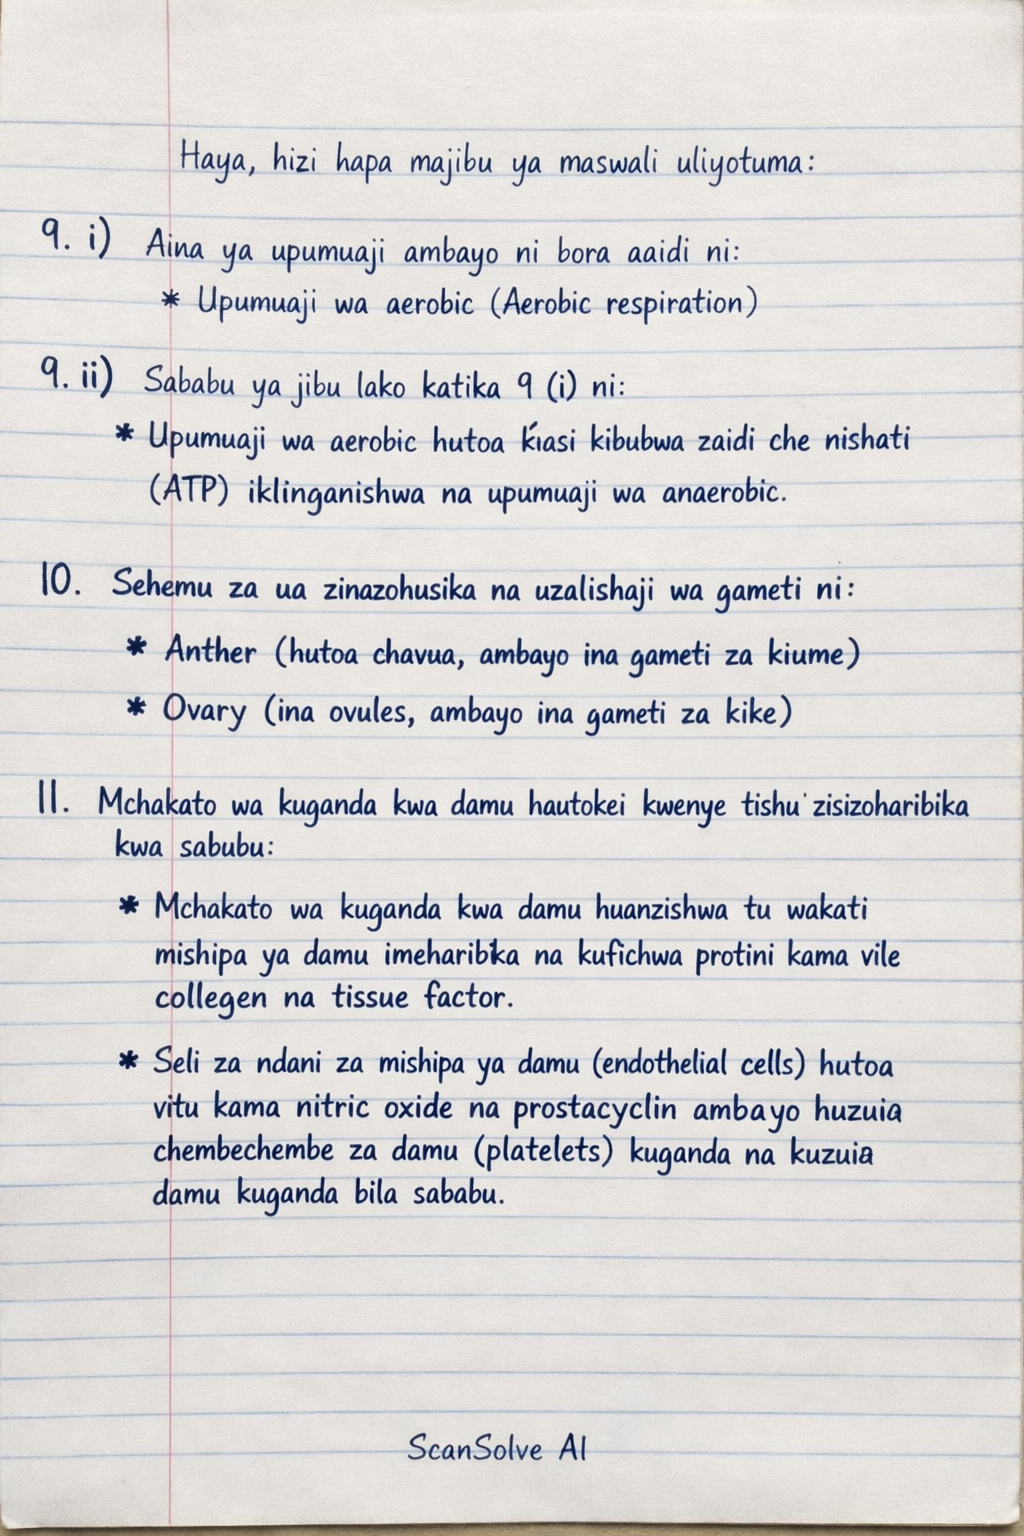 Haya, hizi hapa majibu ya maswali uliyotuma:
9. i) Aina ya upumuaji ambayo ni bora aaidi ni:
* Upumuaji wa aerobic (Aerobic respiration)
9. ii) Sababu ya jibu lako katika 9 (i) ni:
* Upumuaji wa aerobic hutoa kiasi kibubwa zaidi che nishati
(ATP) iklinganishwa na upumuaji wa anaerobic.
10. Sehemu za ua zinazohusika na uzalishaji wa gameti ni:
* Anther (hutoa chavua, ambayo ina gameti za kiume)
* Ovary (ina ovules, ambayo ina gameti za kike)
11. Mchakato wa kuganda kwa damu hautokei kwenye tishu zisizoharibika
kwa sabubu:
* Mchakato wa kuganda kwa damu huanzishwa tu wakati
mishipa ya damu imeharibka na kufichwa protini kama vile
collegen na tissue factor.
* Seli za ndani za mishipa ya damu (endothelial cells) hutoa
vitu kama nitric oxide na prostacyclin ambayo huzuia
chembechembe za damu (platelets) kuganda na kuzuia
damu kuganda bila sababu.
ScanSolve AI